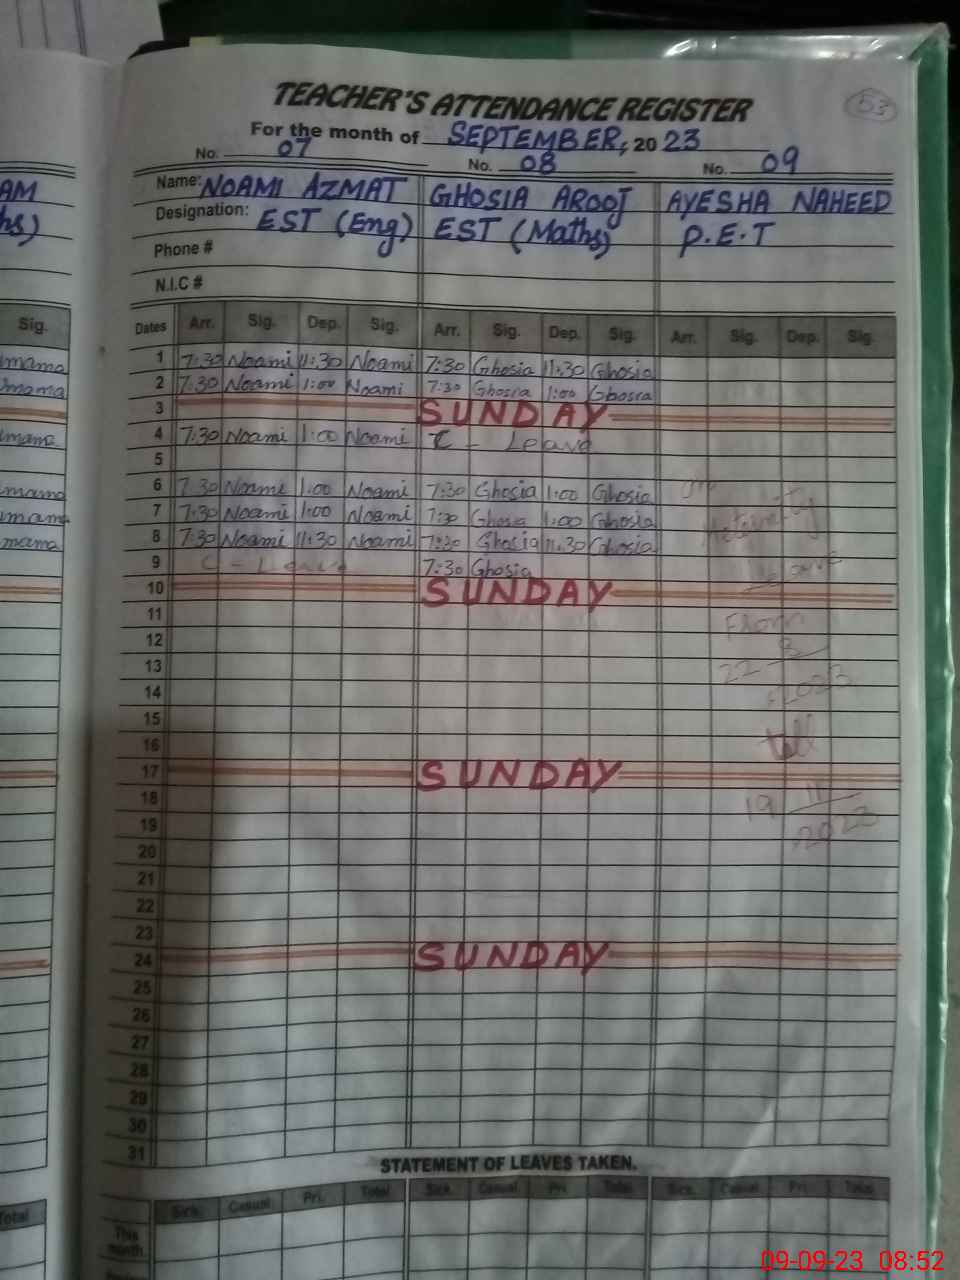 TEACHER'S ATTENDANCE REGISTER
53
For the month of SEPTEMBER, 2023
No. 07 No. 08 No. 09
AM Name: NOAMI AZMAT GHOSIA AROOJ AYESHA NAHEED
hs) Designation: EST (Eng) EST (Maths) P.E.T
Phone #
N.I.C #
Sig. Dates Arr. Sig. Dep. Sig. Arr. Sig. Dep. Sig. Arr. Sig. Dep. Sig.
mama 1 7:30 Noami 11:30 Noami 7:30 Ghosia 11:30 Ghosia
mama 2 7:30 Noami 1:00 Noami 7:30 Ghosia 1:00 Ghosia
3 SUNDAY
mama 4 7:30 Noami 1:00 Noami C - Leave
5
mama 6 7:30 Noami 1:00 Noami 7:30 Ghosia 1:00 Ghosia On
mama 7 7:30 Noami 1:00 Noami 7:30 Ghosia 1:00 Ghosia Meternity
mama 8 7:30 Noami 11:30 Noami 7:30 Ghosia 11:30 Ghosia
9 C - Leave 7:30 Ghosia Leave
10 SUNDAY
11 From
12 22 - 8
13 2023
14
15
16 till
17 SUNDAY
18 19 11
19 2023
20
21
22
23
24 SUNDAY
25
26
27
28
29
30
31
STATEMENT OF LEAVES TAKEN.
Total Sick. Casual Pri. Total Sick. Casual Pri. Total Sick. Casual Pri. Total
This month.
09-09-23 08:52